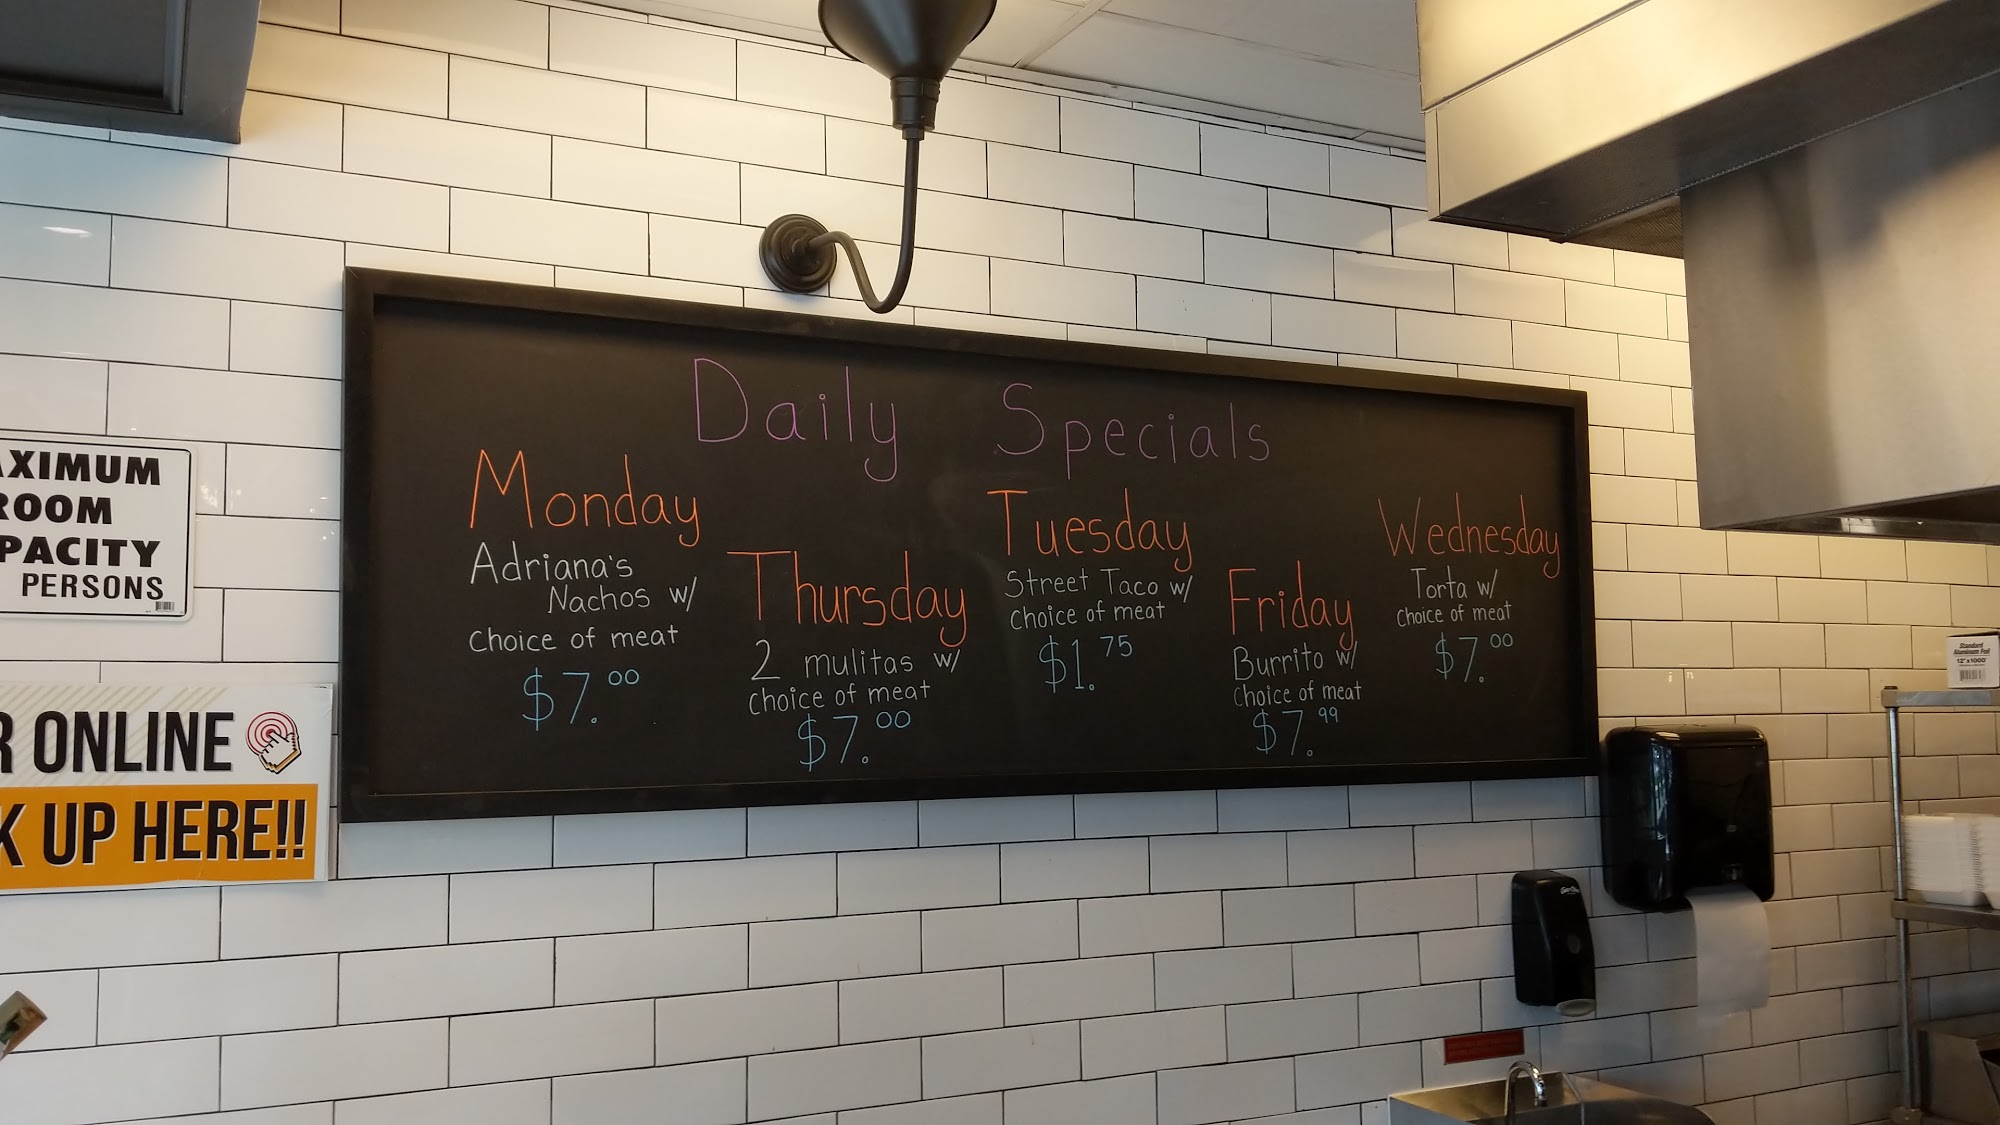 Daily Specials
Monday
Adriana's
Nachos w/
Choice of meat
$7.00
Thursday
2 mulitas w/
choice of meat
$7.00
Tuesday
Street Taco w/
choice of meat
$1.75
Friday
Burrito w/
choice of meat
$7.99
Wednesday
Torta w/
choice of meat
$7.00
AXIMUM
ROOM
PACITY
PERSONS
R ONLINE
K UP HERE!!
Standard
Aluminum Foil
12"x1000'